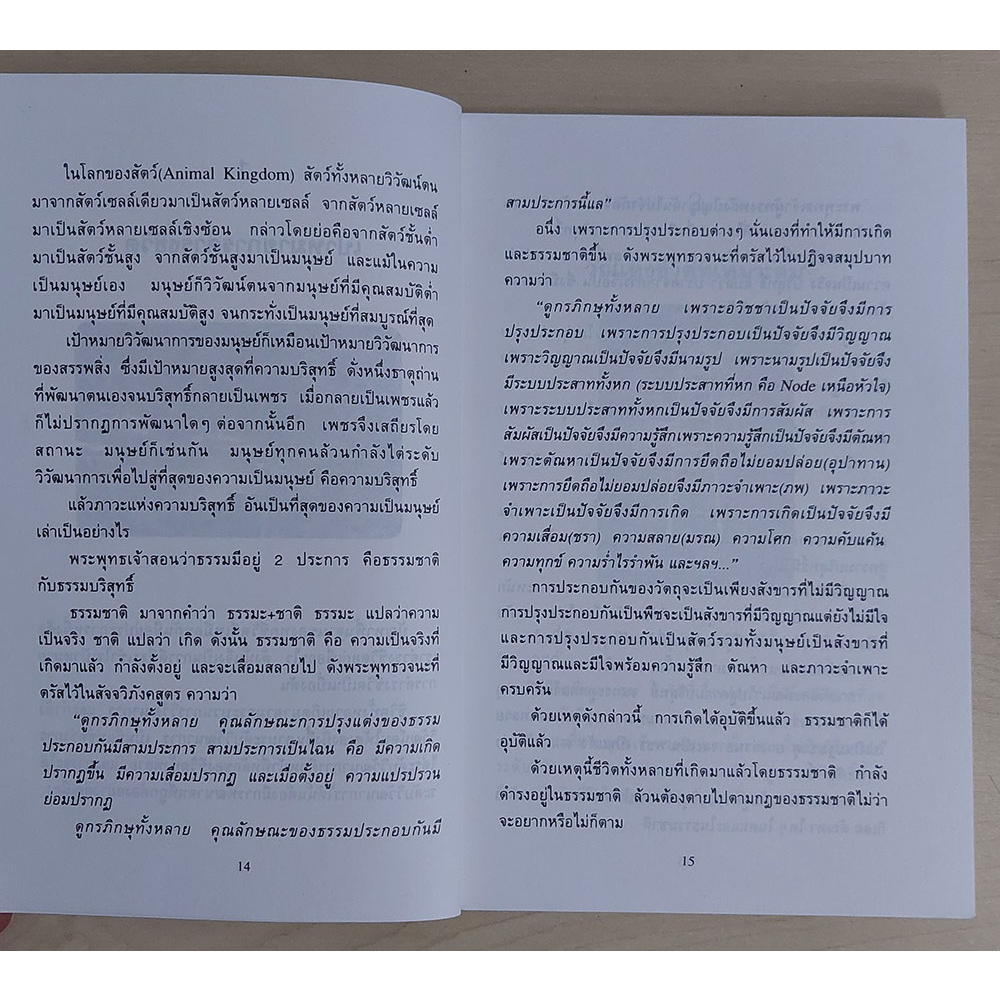 ในโลกของสัตว์(Animal Kingdom) สัตว์ทั้งหลายวิวัฒน์ตน
มาจากสัตว์เซลล์เดียวมาเป็นสัตว์หลายเซลล์ จากสัตว์หลายเซลล์
มาเป็นสัตว์หลายเซลล์เชิงซ้อน กล่าวโดยย่อคือจากสัตว์ชั้นต่ำ
มาเป็นสัตว์ชั้นสูง จากสัตว์ชั้นสูงมาเป็นมนุษย์ และแม้ในความ
เป็นมนุษย์เอง มนุษย์ก็วิวัฒน์ตนจากมนุษย์ที่มีคุณสมบัติต่ำ
มาเป็นมนุษย์ที่มีคุณสมบัติสูง จนกระทั่งเป็นมนุษย์ที่สมบูรณ์ที่สุด
เป้าหมายวิวัฒนาการของมนุษย์ก็เหมือนเป้าหมายวิวัฒนาการ
ของสรรพสิ่ง ซึ่งมีเป้าหมายสูงสุดที่ความบริสุทธิ์ ดั่งหนึ่งธาตุถ่าน
ที่พัฒนาตนเองจนบริสุทธิ์กลายเป็นเพชร เมื่อกลายเป็นเพชรแล้ว
ก็ไม่ปรากฏการพัฒนาใดๆ ต่อจากนั้นอีก เพชรจึงเสถียรโดย
สถานะ มนุษย์ก็เช่นกัน มนุษย์ทุกคนล้วนกำลังไต่ระดับ
วิวัฒนาการเพื่อไปสู่ที่สุดของความเป็นมนุษย์ คือความบริสุทธิ์
แล้วภาวะแห่งความบริสุทธิ์ อันเป็นที่สุดของความเป็นมนุษย์
เล่าเป็นอย่างไร
พระพุทธเจ้าสอนว่าธรรมมีอยู่ 2 ประการ คือธรรมชาติ
กับธรรมบริสุทธิ์
ธรรมชาติ มาจากคำว่า ธรรมะ+ชาติ ธรรมะ แปลว่าความ
เป็นจริง ชาติ แปลว่า เกิด ดังนั้น ธรรมชาติ คือ ความเป็นจริงที่
เกิดมาแล้ว กำลังตั้งอยู่ และจะเสื่อมสลายไป ดังพระพุทธวจนะที่
ตรัสไว้ในสัจจวิภังคสูตร ความว่า
“ดูกรภิกษุทั้งหลาย คุณลักษณะการปรุงแต่งของธรรม
ประกอบกันมีสามประการ สามประการเป็นไฉน คือ มีความเกิด
ปรากฏขึ้น มีความเสื่อมปรากฏ และเมื่อตั้งอยู่ ความแปรปรวน
ย่อมปรากฏ
ดูกรภิกษุทั้งหลาย คุณลักษณะของธรรมประกอบกันมี
14
สามประการนี้แล”
อนึ่ง เพราะการปรุงประกอบต่างๆ นั่นเองที่ทำให้มีการเกิด
และธรรมชาติขึ้น ดังพระพุทธวจนะที่ตรัสไว้ในปฏิจจสมุปบาท
ความว่า
“ดูกรภิกษุทั้งหลาย เพราะอวิชชาเป็นปัจจัยจึงมีการ
ปรุงประกอบ เพราะการปรุงประกอบเป็นปัจจัยจึงมีวิญญาณ
เพราะวิญญาณเป็นปัจจัยจึงมีนามรูป เพราะนามรูปเป็นปัจจัยจึง
มีระบบประสาททั้งหก (ระบบประสาทที่หก คือ Node เหนือหัวใจ)
เพราะระบบประสาททั้งหกเป็นปัจจัยจึงมีการสัมผัส เพราะการ
สัมผัสเป็นปัจจัยจึงมีความรู้สึกเพราะความรู้สึกเป็นปัจจัยจึงมีตัณหา
เพราะตัณหาเป็นปัจจัยจึงมีการยึดถือไม่ยอมปล่อย(อุปาทาน)
เพราะการยึดถือไม่ยอมปล่อยจึงมีภาวะจำเพาะ(ภพ) เพราะภาวะ
จำเพาะเป็นปัจจัยจึงมีการเกิด เพราะการเกิดเป็นปัจจัยจึงมี
ความเสื่อม(ชรา) ความสลาย(มรณ) ความโศก ความคับแค้น
ความทุกข์ ความร่ำไรรำพัน และฯลฯ...”
การประกอบกันของวัตถุจะเป็นเพียงสังขารที่ไม่มีวิญญาณ
การปรุงประกอบกันเป็นพืชจะเป็นสังขารที่มีวิญญาณแต่ยังไม่มีใจ
และการปรุงประกอบกันเป็นสัตว์รวมทั้งมนุษย์เป็นสังขารที่
มีวิญญาณและมีใจพร้อมความรู้สึก ตัณหา และภาวะจำเพาะ
ครบครัน
ด้วยเหตุดังกล่าวนี้ การเกิดได้อุบัติขึ้นแล้ว ธรรมชาติก็ได้
อุบัติแล้ว
ด้วยเหตุนี้ชีวิตทั้งหลายที่เกิดมาแล้วโดยธรรมชาติ กำลัง
ดำรงอยู่ในธรรมชาติ ล้วนต้องตายไปตามกฎของธรรมชาติไม่ว่า
จะอยากหรือไม่ก็ตาม
15